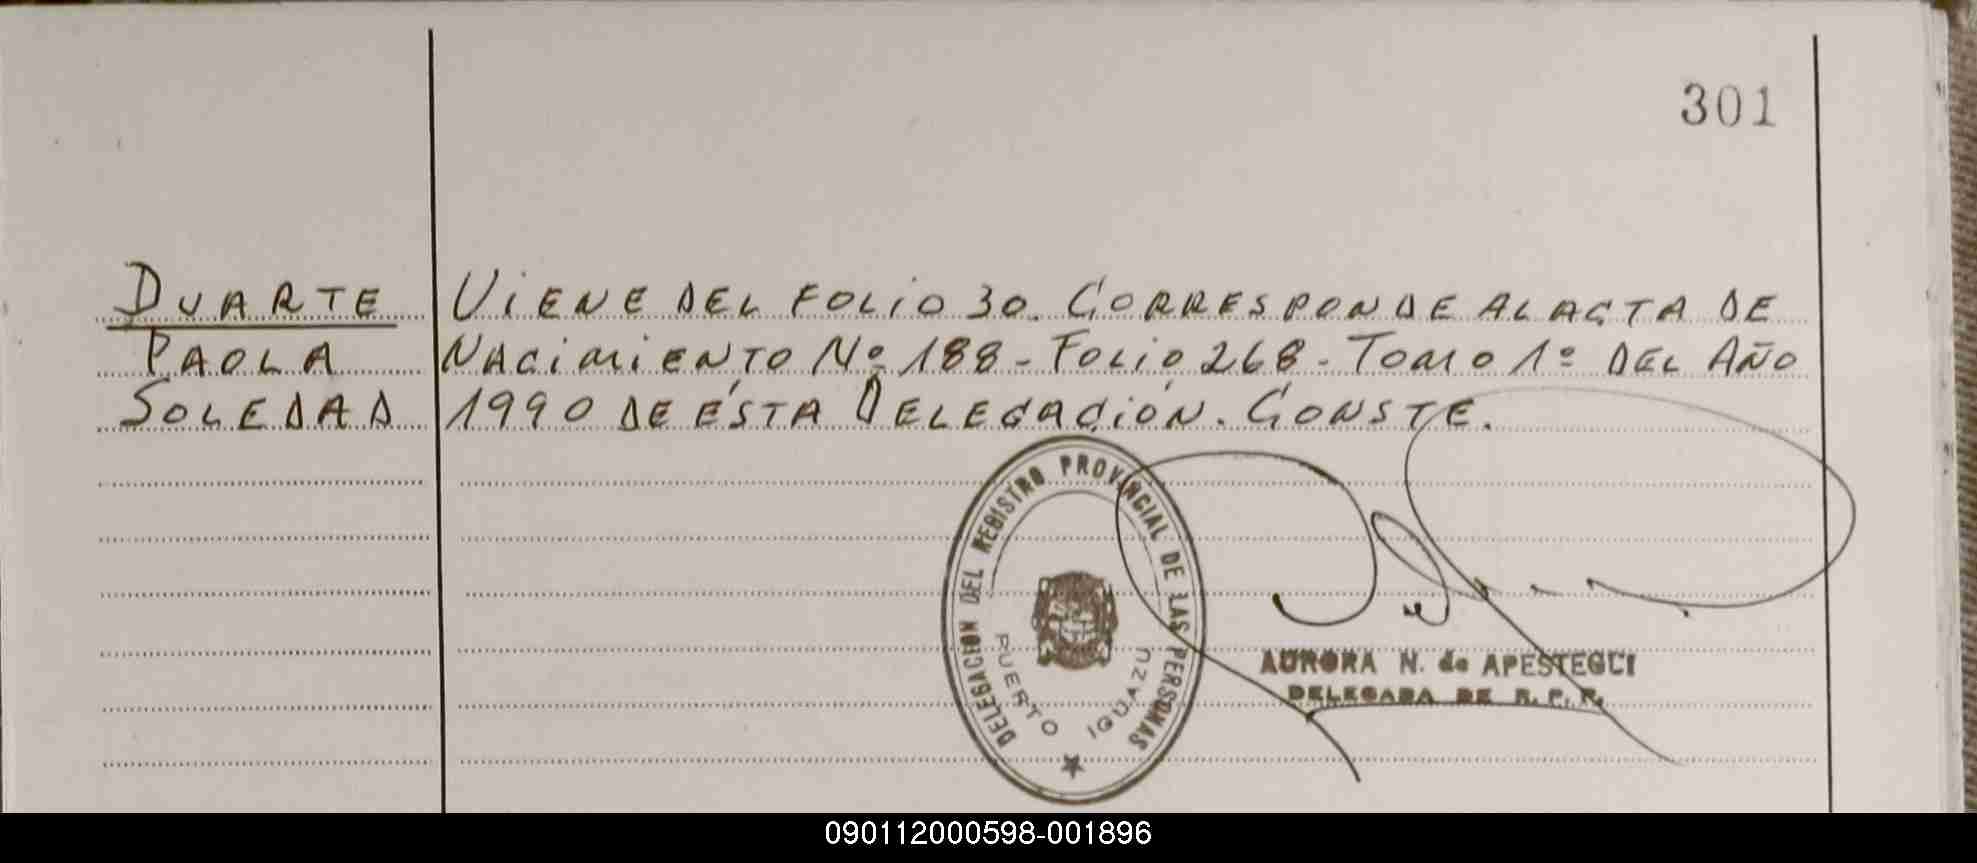 301
DUARTE VIENE DEL FOLIO 30. CORRESPONDE AL ACTA DE
PAOLA NACIMIENTO Nº 188 - FOLIO 268 - TOMO 1º DEL AÑO
SOLEDAD 1990 DE ÉSTA DELEGACIÓN. CONSTE.
DELEGACION DEL REGISTRO PROVINCIAL DE LAS PERSONAS
PUERTO IGUAZU
AURORA N. de APESTEGUI
DELEGADA DE R. P. P.
090112000598-001896